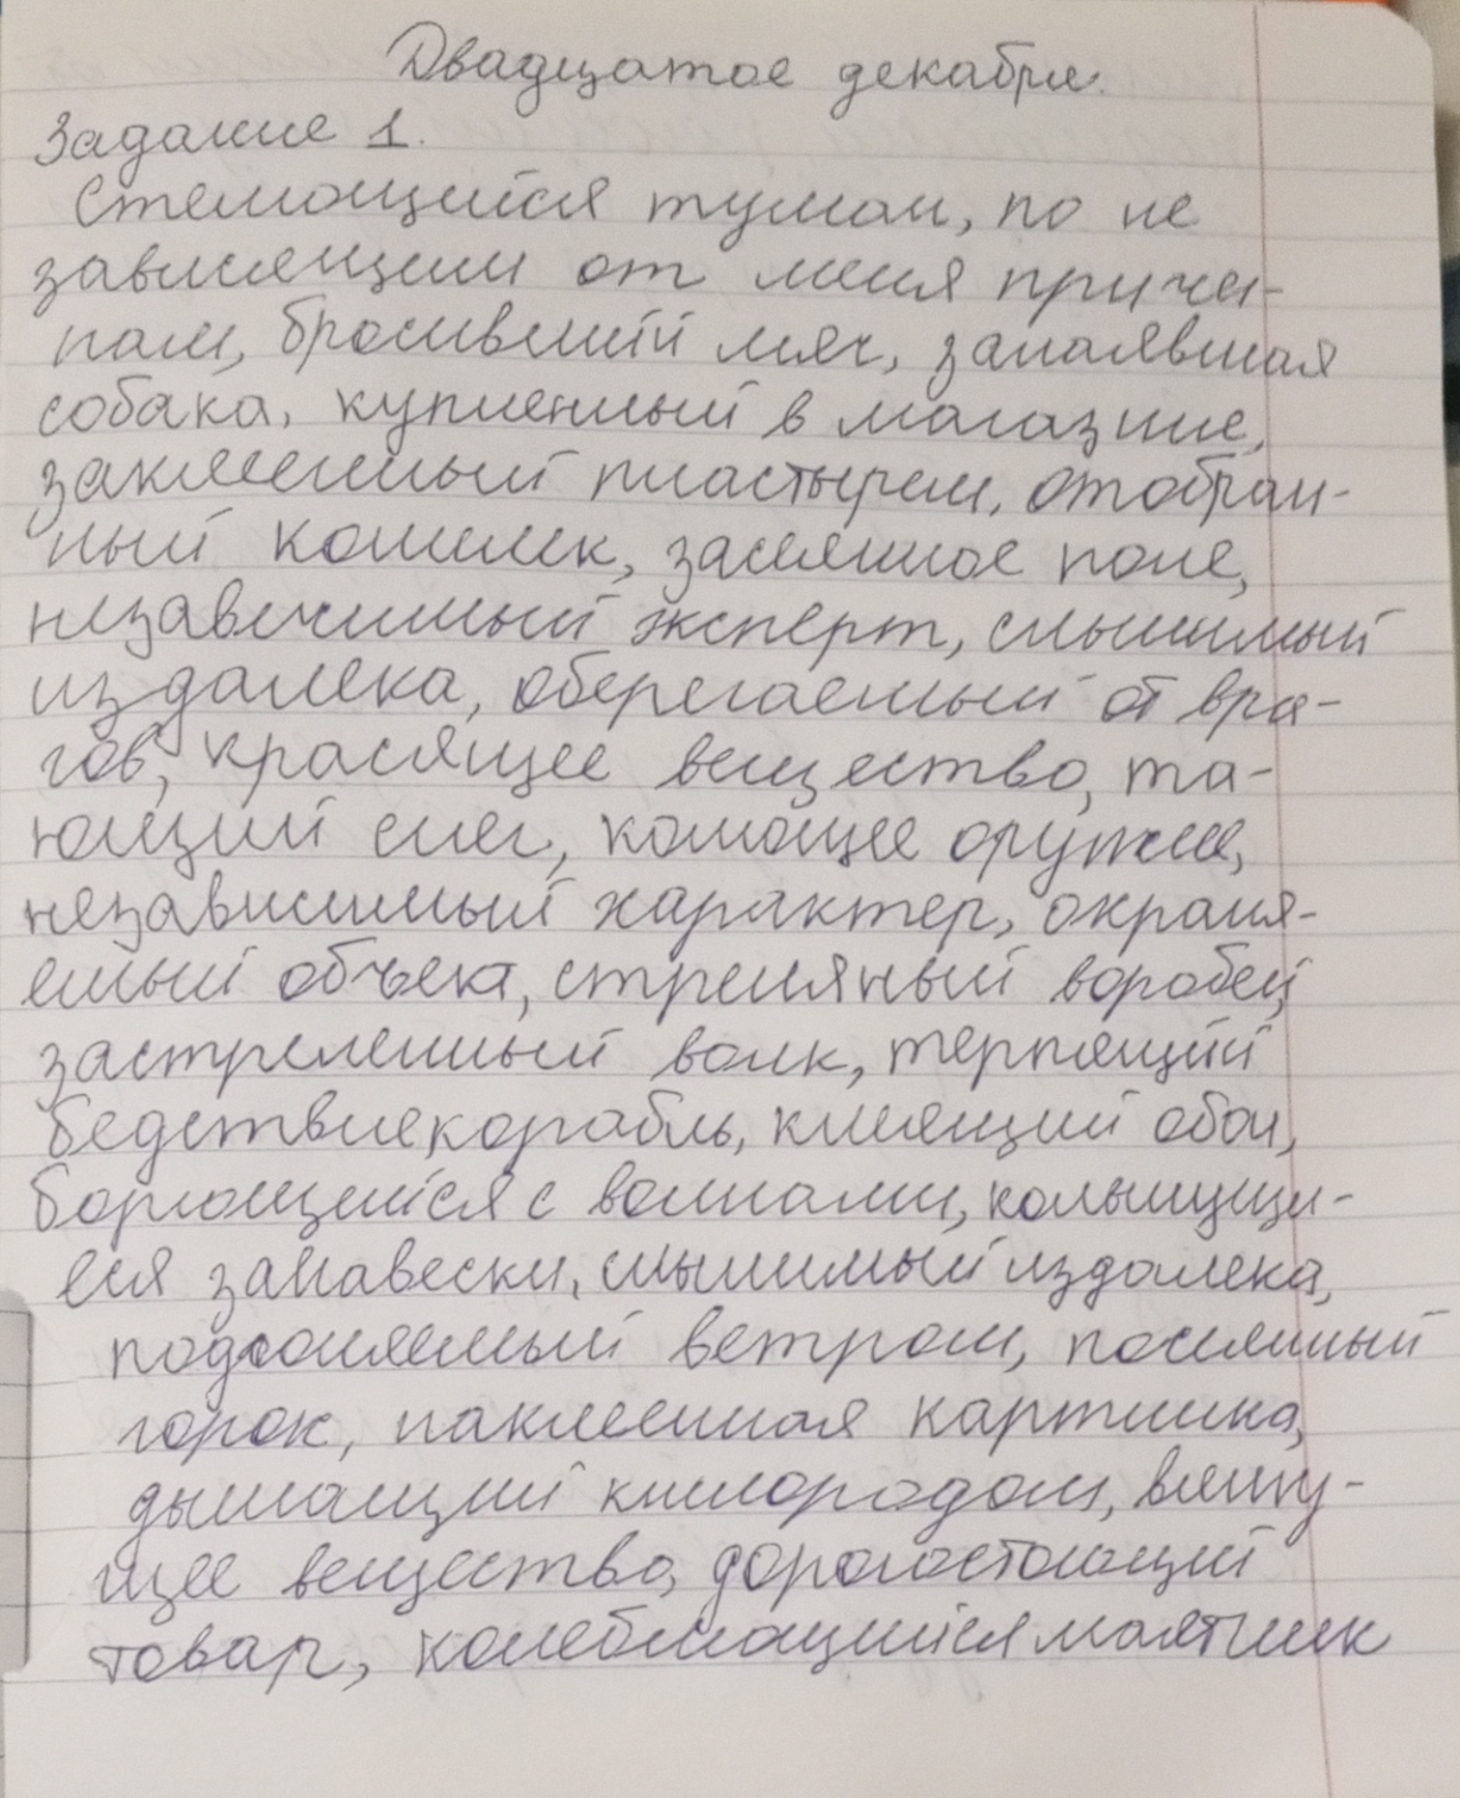 Двадцатое декабря.
Задание 1.
Стелющийся туман, по не
зависящим от меня причи-
нам, бросивший мяч, залаявшая
собака, купленный в магазине,
заклеенный пластырем, отобран-
ный кошелек, засеянное поле,
независимый эксперт, слышимый
издалека, оберегаемый от вра-
гов, красящее вещество, та-
ющий снег, колющее оружие,
независимый характер, охраня-
емый объект, стрелянный воробей,
застреленный волк, терпящий
бедствие корабль, клеящий обои,
борющийся с волнами, колышущи-
еся занавески, слышимый издалека,
подгоняемый ветром, посеянный
горох, наклеенная картинка,
дышащий кислородом, вяжу-
щее вещество, дорогостоящий
товар, колеблющийся маятник